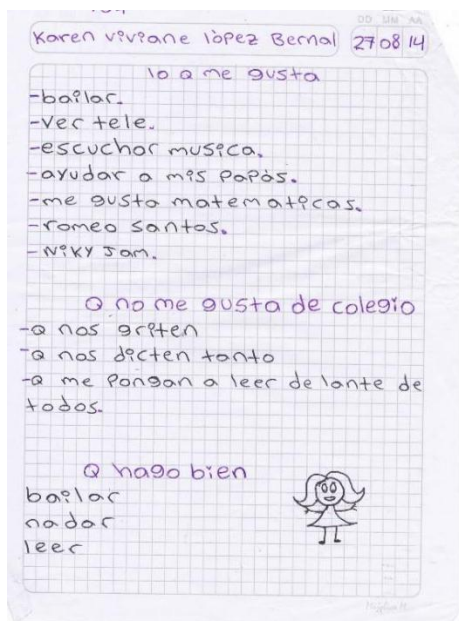 DD MM AA
Karen viviane lòpez Bernal 27 08 14
lo Q me gusta
-bailar.
-ver tele.
-escuchar musica.
-ayudar a mis papàs.
-me gusta matematicas.
-romeo santos.
-Niky Jam.
Q no me gusta de colegio
-Q nos griten
-Q nos dicten tanto
-Q me pongan a leer de lante de
todos.
Q hago bien
bailar
nadar
leer